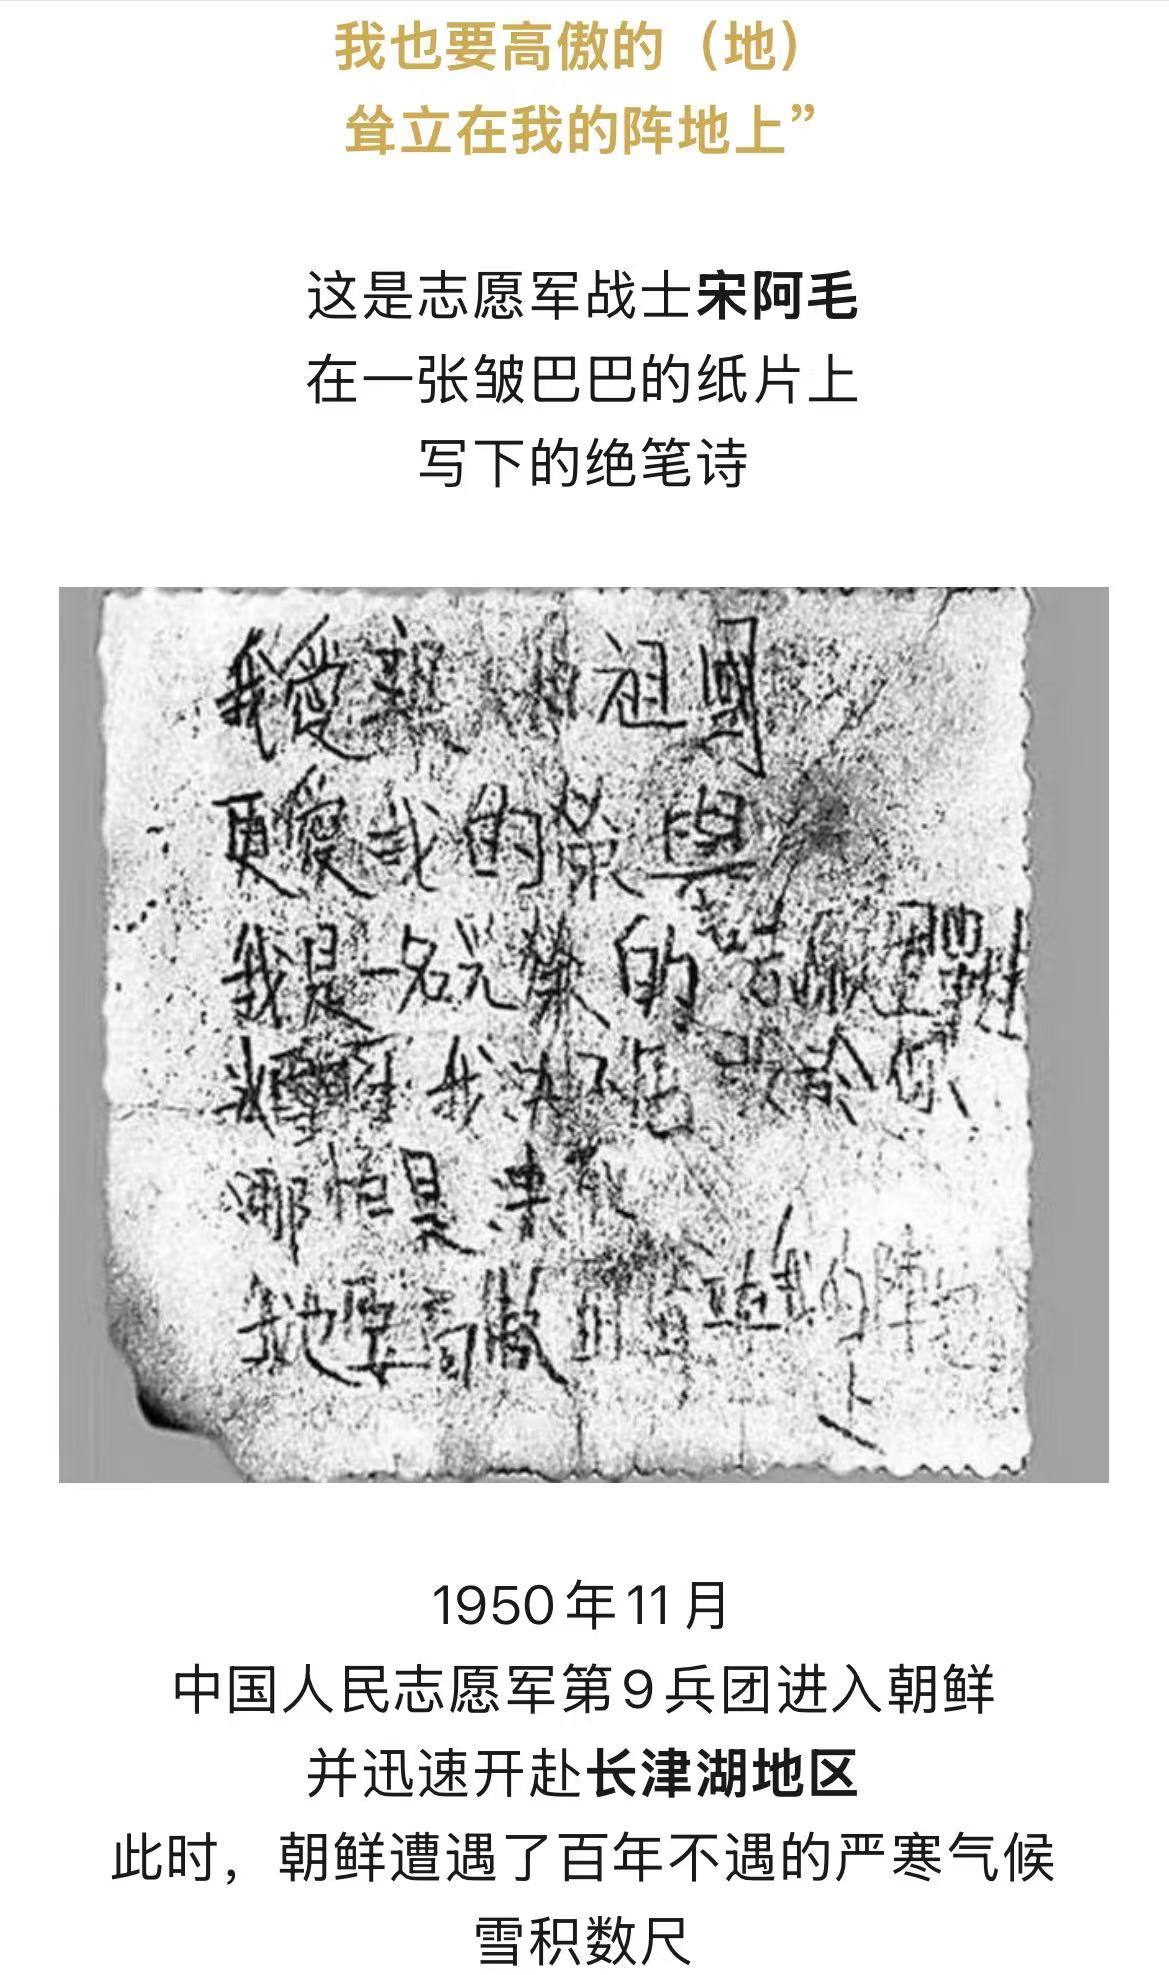 我也要高傲的（地）
耸立在我的阵地上”
这是志愿军战士宋阿毛
在一张皱巴巴的纸片上
写下的绝笔诗
我爱亲 的祖國
更爱我的荣與
我是一名光荣的志願軍戰士
我决不 给你
哪怕是凍
我也要高傲 立在我的阵地
上
1950年11月
中国人民志愿军第9兵团进入朝鲜
并迅速开赴长津湖地区
此时，朝鲜遭遇了百年不遇的严寒气候
雪积数尺